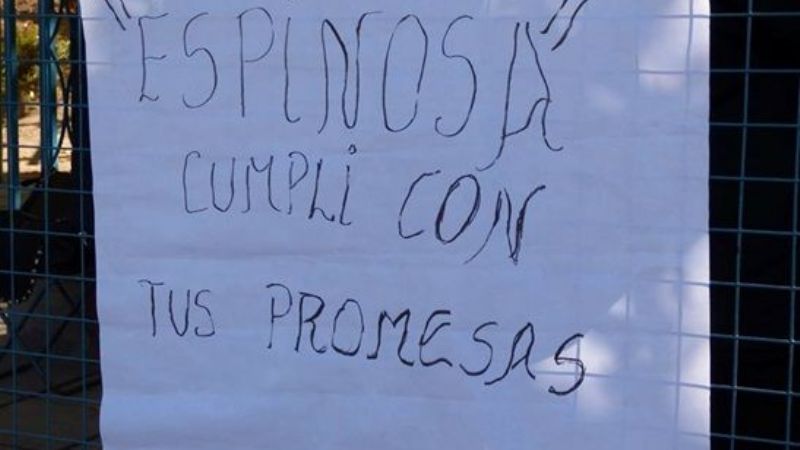 "ESPINOSA"
CUMPLi CON
TUS PROMESAS